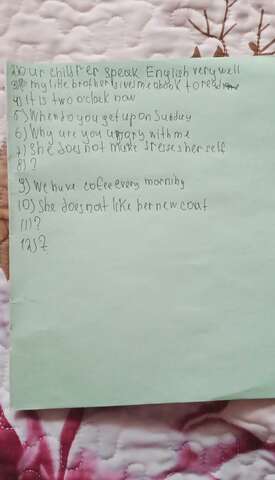 2) Our children speak English very well
3) my little brother gives me a book to read
4) It is two o'clock now
5) When do you get up on Sunday
6) Why are you angry with me
7) She does not make dresses herself
8) ?
9) We have cofee every morning
10) She does not like her new coat
11) ?
12) ?